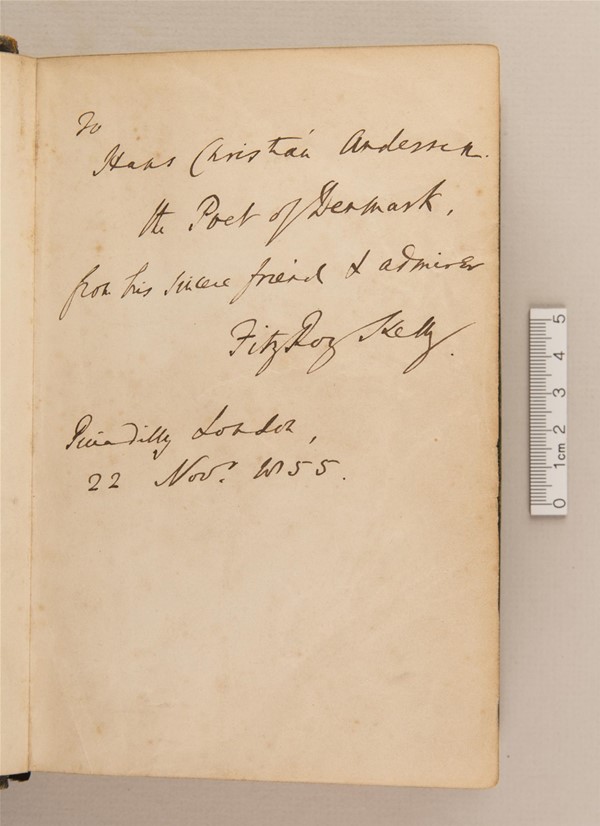 To
Hans Christian Anderssen.
the Poet of Denmark,
from his sincere friend & admirer
FitzRoy Kelly.
Piccadilly London,
22 Novr. 1855.
0 1cm 2 3 4 5